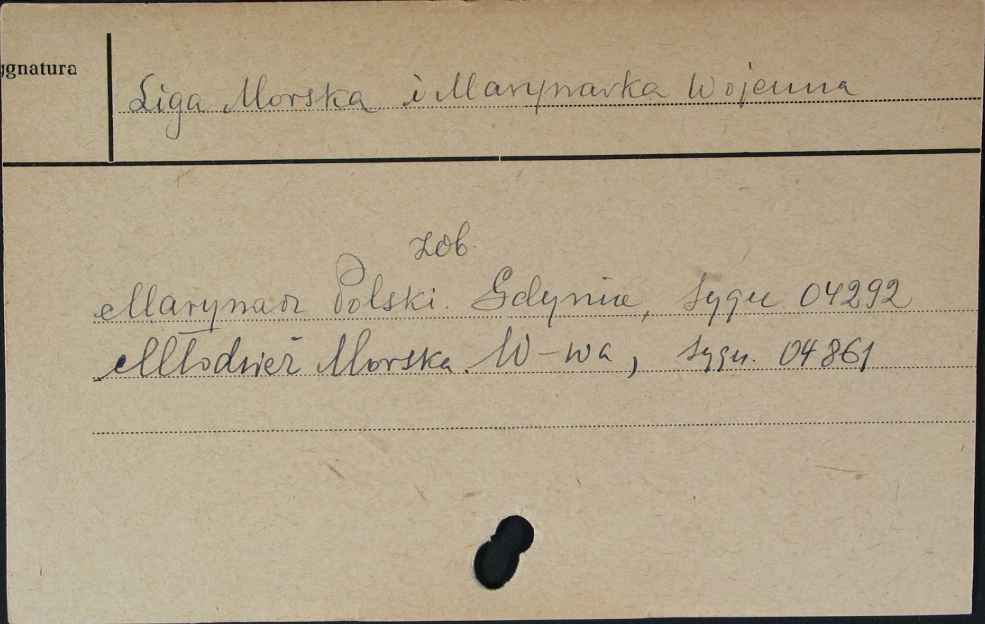 ygnatura
Liga Morska i Marynarka Wojenna
zob.
Marynarz Polski. Gdynia, sygn 04292
Młodzież Morska. W-wa, sygn. 04861